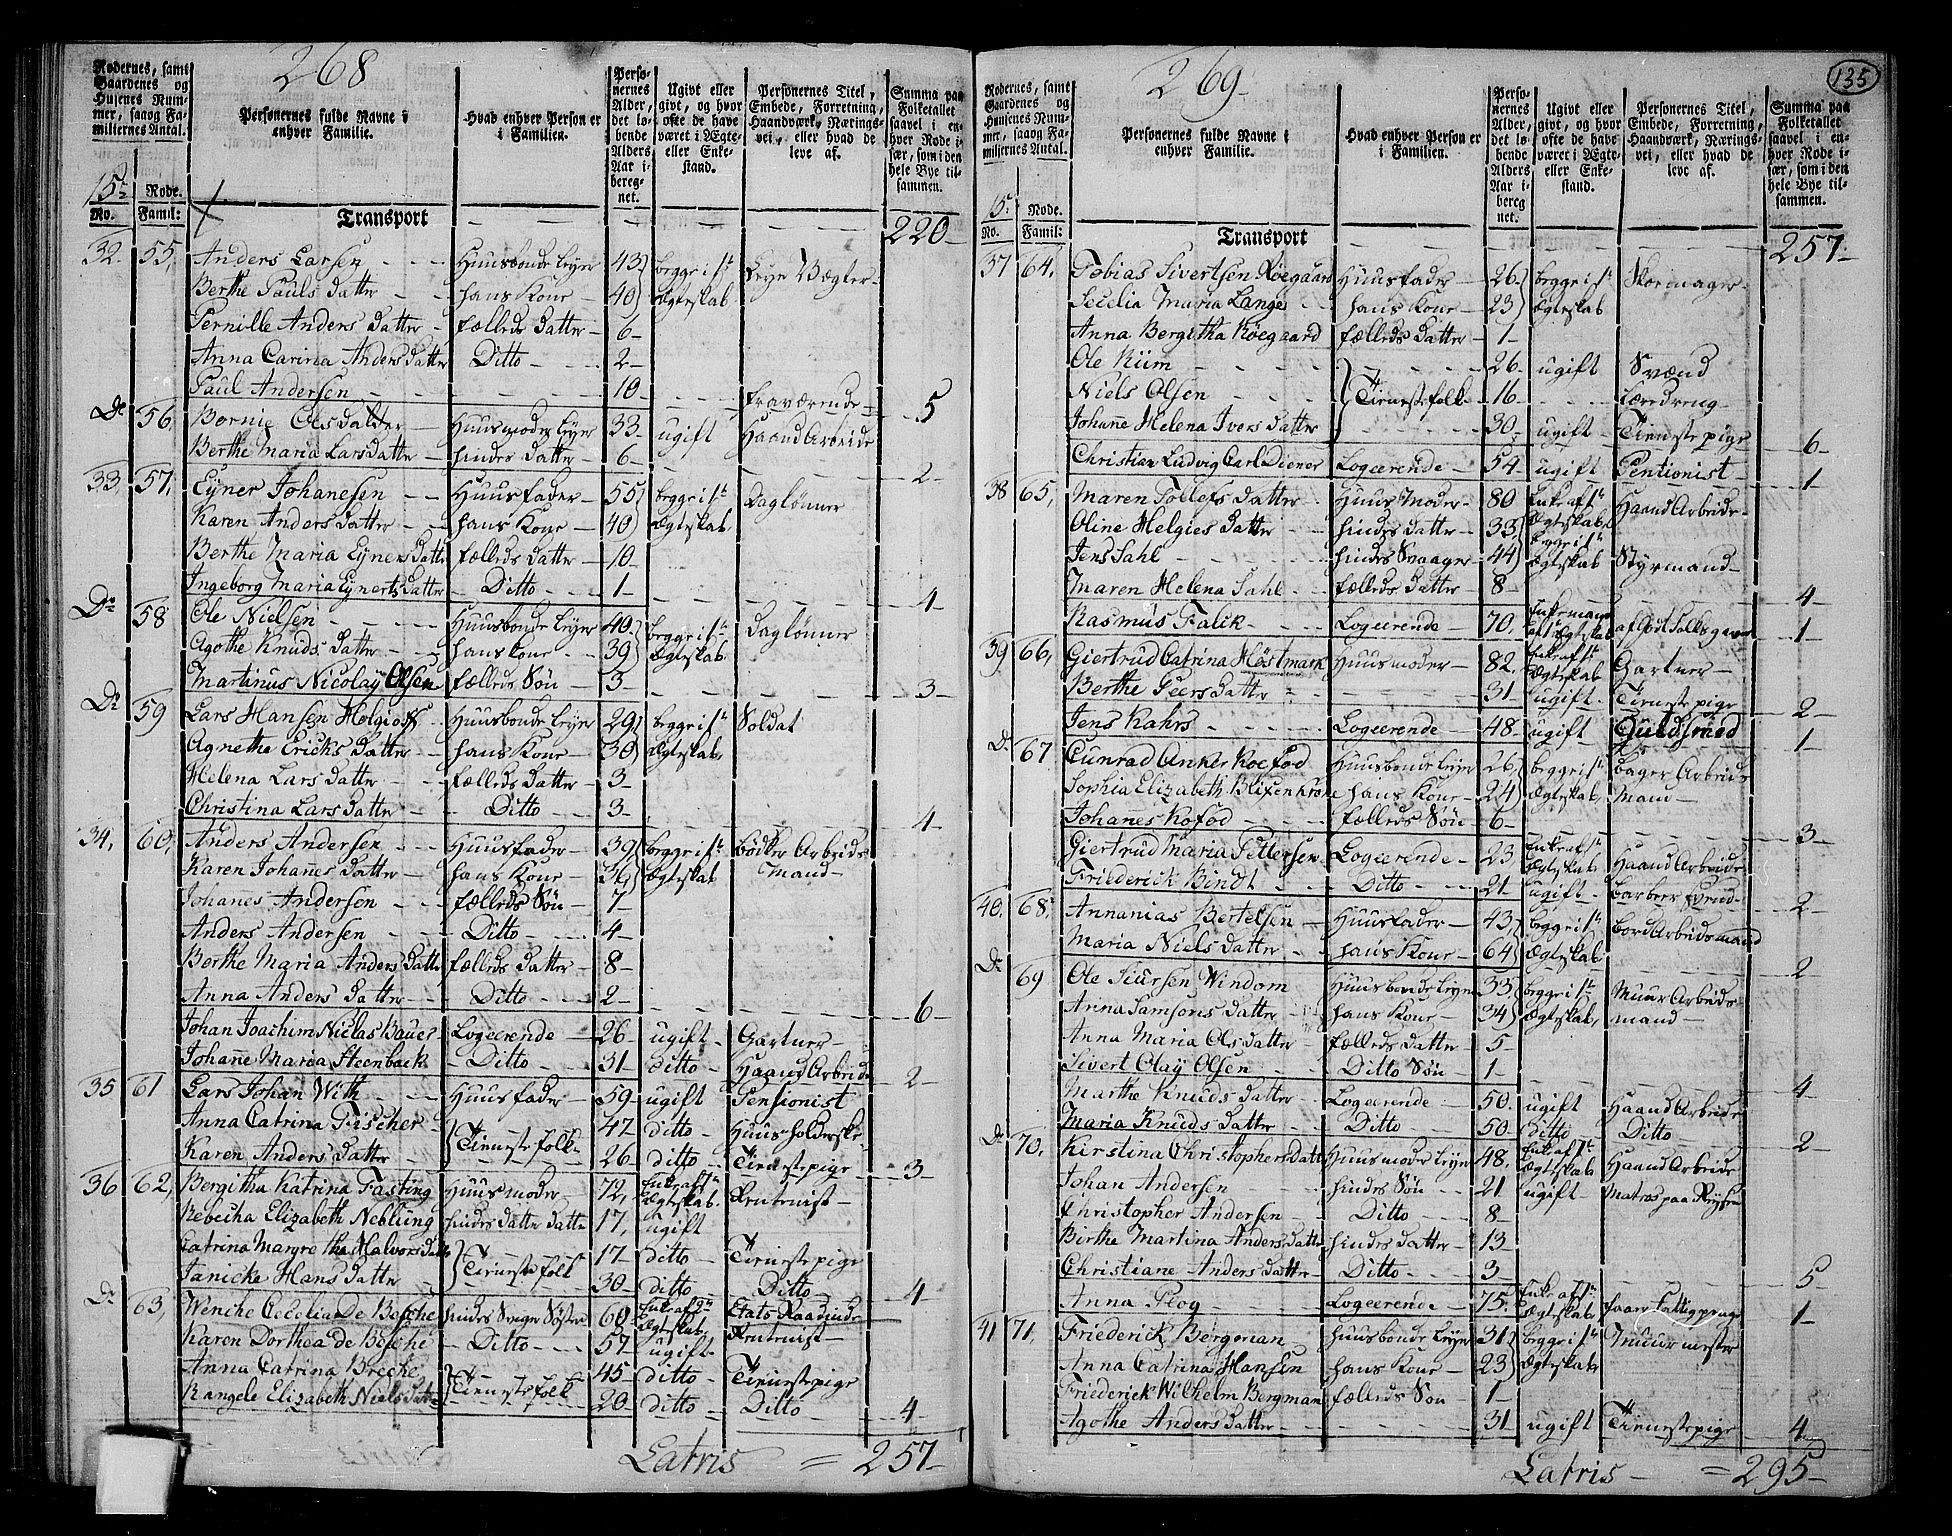 268
Rodernes, samt Gaardenes og Husenes Nummer, saaog Familiernes Antal.
Personernes fulde Navne i enhver Familie.
Hvad enhver Person er i Familien.
Personernes Alder, det løbende Alders Aar iberegnet.
Ugivt eller givt, og hvor ofte de have været i Ægte- eller Enkestand.
Personernes Titel, Embede, Forretning, Haandværk, Næringsvei, eller hvad de leve af.
Summa paa Folketallet saavel i enhver Rode især, som i den hele Bye tilsammen.
15de Rode.
No. Famil:
Transport 220
32. 55. Anders Larsen Huusbonde Leyer 43 begge i 1te Leye Vægter
Berthe Pauls datter hans Kone 40 Ægteskab
Pernille Anders datter fælleds datter 6
Anna Carina Anders datter Ditto 2
Paul Andersen 10 fraværende 5
Do 56 Bornie Olsdatter Huusmoder Leyer 33 ugift Haand Arbeide
Berthe Maria Larsdatter hindes datter 6 2
33 57. Eyner Johanesen Huusfader 55 begge i 1te Daglønner
Karen Anders datter hans Kone 40 Ægteskab
Berthe Maria Eyners datter fælleds datter 10
Ingeborg Maria Eynerts datter Ditto 1 4
Do 58 Ole Nielsen Huusbonde Leyer 40 begge i 1te Daglønner
Agothe Knuds datter hans kone 39 Ægteskab
Martinus Nicolay Olsen fælleds Søn 3 3
Do 59 Lars Hansen Huusbonde Leyer 29 begge i 1te Soldat
Agnethe Ericks datter hans Kone 30 Ægteskab
Helena Lars datter fælleds datter 3
Christina Lars datter Ditto 3 4
34. 60. Anders Andersen Huusfader 39 begge i 1te bødker Arbeids
Karen Johanes datter hans Kone 34 Ægteskab Mand
Johanes Andersen fælleds Søn 7
Anders Andersen Ditto 4
Berthe Maria Anders datter fælleds datter 8
Anna Anders datter Ditto 2 6
Johan Joachim Niclas Bauer Logeerende 26 ugift Gartner
Johane Maria Steenback Ditto 31 ditto Haand Arbeide 2
35 61 Lars Johan With Huusfader 59 ugift Pensionist
Anna Catrina Fischer Tienestefolk 47 ditto Huusholderske
Karen Anders datter 26 ditto Tienestepige 3
36 62. Bergitha Katrina Fasting Huusmoder 72 Enke af 1te Ægteskab Rentenist
Rebecha Elizabeth Neblung hindes datter datter 17 ugift
Catrina Margrethe Halvorsdatter Tienestefolk 17 ditto Tienestepige
Janicke Hans datter 30 ditto Ditto 4
Do 63. Wenche Cecilia De Besche hindes Sviger Søster 60 Enke af Ægteskab Etats Raadinde
Karen Dorthea de Besche Ditto 57 ugift Rentenist
Anna Catrina Breche Tienestefolk 45 ditto Tienestepige
Rangele Elizabeth Niels datter 20 ditto Ditto 4
Latris = 257
269
135
Rodernes, samt Gaardenes og Husenes Nummer, saaog Familiernes Antal.
Personernes fulde Navne i enhver Familie.
Hvad enhver Person er i Familien.
Personernes Alder, det løbende Alders Aar ibereg net.
Ugivt eller givt, og hvor ofte de have været i Ægte- eller Enkestand.
Personernes Titel, Embede, Forretning, Haandværk, Næringsvei, eller hvad de leve af.
Summa paa Folketallet saavel i enhver Rode især, som i den hele Bye tilsammen.
15. Rode.
No. Famil:
Transport 257
37 64. Tobias Sivertsen Røegaard Huusfader 26 begge i 1te Skoemager
Secelia Maria Lange hans Kone 23 Ægteskab
Anna Bergitha Røegaard fælleds datter 1
Ole Kiim Tienestefolk 26 ugift Svænd
Niels Olsen 16 Læredreng
Johane Helena Ivers datter 30 ugift Tienestepige 6
Christian Ludvig Carl Diener Logeerende 54 ugift Pentionist 1
38 65. Maren Tollefs datter Huus Moder 80 Enke af 1te Ægteskab Haand Arbeide
Oline Helgies datter hindes datter 33 begge i 1te
Jens Sahl hindes Svager 44 Ægteskab Styrmand
Maren Helena Sahl fælleds datter 8 4
Rasmus Falik Logeerende 70 Enkemand af Ægteskab 1
39 66. Giertrud Catrina Høstmark Huusmoder 82 Enke af 1te Ægteskab Gartner
Berthe Peers datter 31 ugift Tienstepige 2
Jens Kahrs Logeerende 48 ugift Guldsmed 1
Do 67 Cunrad Anker Koefod Huusbonde Leyer 26 begge i 1te bager Arbeids
Sophia Elizabeth Blixenkrone hans Kone 24 Ægteskab Mand
Johanes Kofod fælleds Søn 6 3
Giertrud Maria Pettersen Logeerende 23 Enke af 1te Ægteskab Haand Arbeide
Friederick Bindt Ditto 21 ugift barbeer Svend 2
40. 68. Annanias Bertelsen Huusfader 43 begge i 1te bord Arbeidsmand
Maria Niels datter hans Kone 64 Ægteskab 2
Do 69 Ole Siursen Windom Huusbonde Leyer 33 begge i 1te Muur Arbeids
Anna Samsons datter hans Kone 34 Ægteskab mand
Anna Maria Olsdatter fælleds datter 5
Sivert Olay Olsen Ditto Søn 1 4
Marthe Knuds datter Logeerende 50 ugift Haand Arbeide
Maria Knuds datter Ditto 50 ditto Ditto 2
Do 70. Kirstina Christophersdatter Huusmoder Leyer 48 Enke af 1te Ægteskab Haand Arbeide
Johan Andersen hindes Søn 21 ugift Matros paa Reysen
Christopher Andersen Ditto 8
Birthe Martina Anders datter hindes datter 13
Christiane Anders datter Ditto 3 5
Anna Ploy Logeerende 75 Enke af 1te Ægteskab faaer Fattigpenge 1
41 71. Friederick Bergman Huusbonde Leyer 31 begge i 1te Muurmester
Anna Catrina Hansen hans Kone 23 Ægteskab
Friederick Wilhelm Bergman fælleds Søn 1
Agothe Anders datter 31 ugift Tienestepige 4
Latris = 295